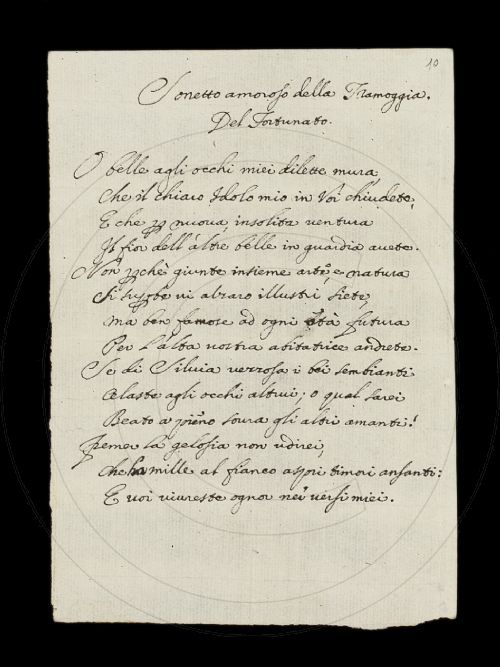 10
Sonetto amoroso della Tramoggia.
Del Fortunato.
O belle agli occhi miei dilette mura,
Che il chiaro Idolo mio in Voi chiudete,
E che p nuova, insolita ventura
Il fior dell'altre belle in guardia avete.
Non pchè giunte insieme arte, e natura
Si v'alzaro illustri siete,
Ma ben famose ad ogni età futura
Per l'alta vostra abitatrice andrete.
Se di Silvia vezzosa i bei sembianti
Celaste agli occhi altrui; o qual sarei
Beato a pieno sovra gli altri amanti!
Fremer la gelosia non udirei,
Che ha mille al fianco aspri timori ansanti:
E voi vivreste ognor nei versi miei.